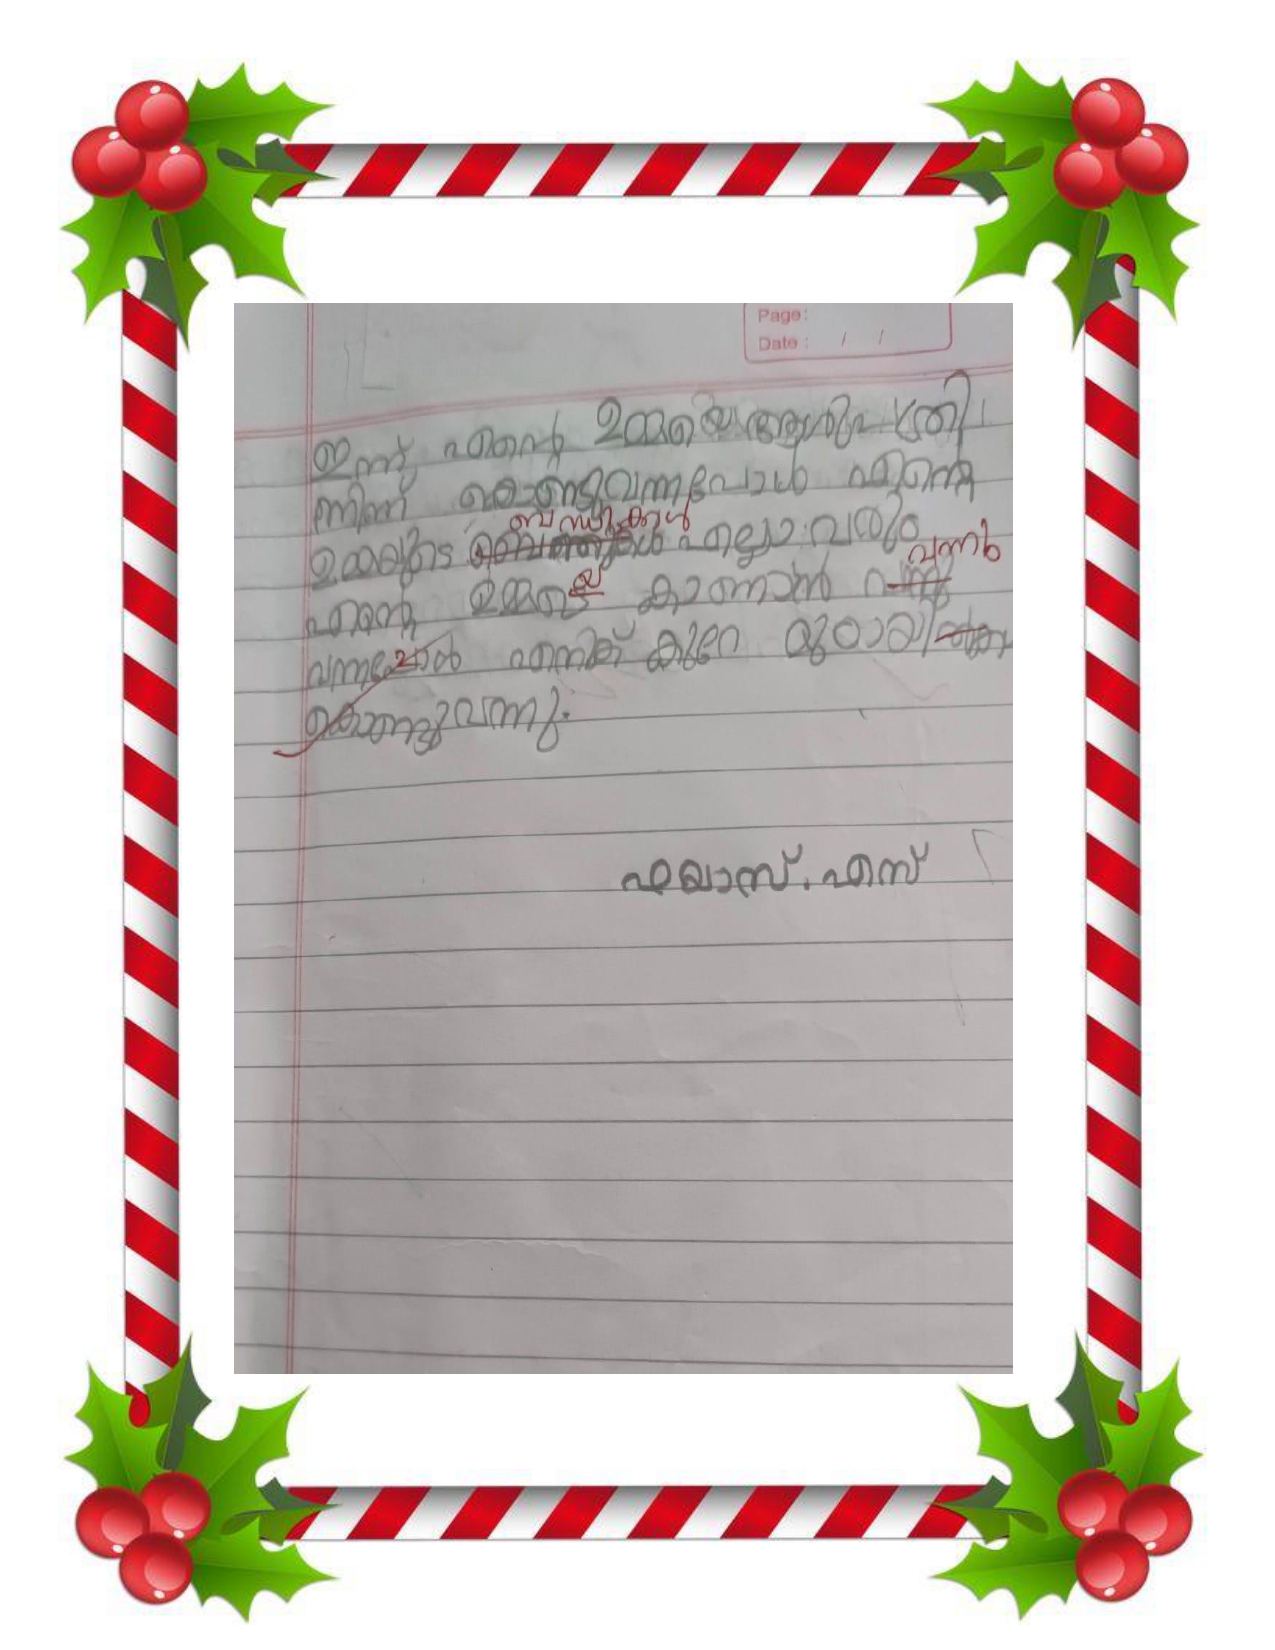 Page:
Date : / /
ഇന്ന് എന്റെ ഉമ്മയെ ആശുപത്രി
ന്നിന്ന് കൊണ്ടുവന്നപോൾ എന്റെ
ബന്ധുക്കൾ
ഉമ്മയുടെ എല്ലാവരും
വന്നു
എന്റെ കാണാൻ വന്നു
യെ
വന്നപ്പോൾ എനിക് കുറേ മുഠായി
കൊണ്ടുവന്നു.
ഫയാസ്. എസ്